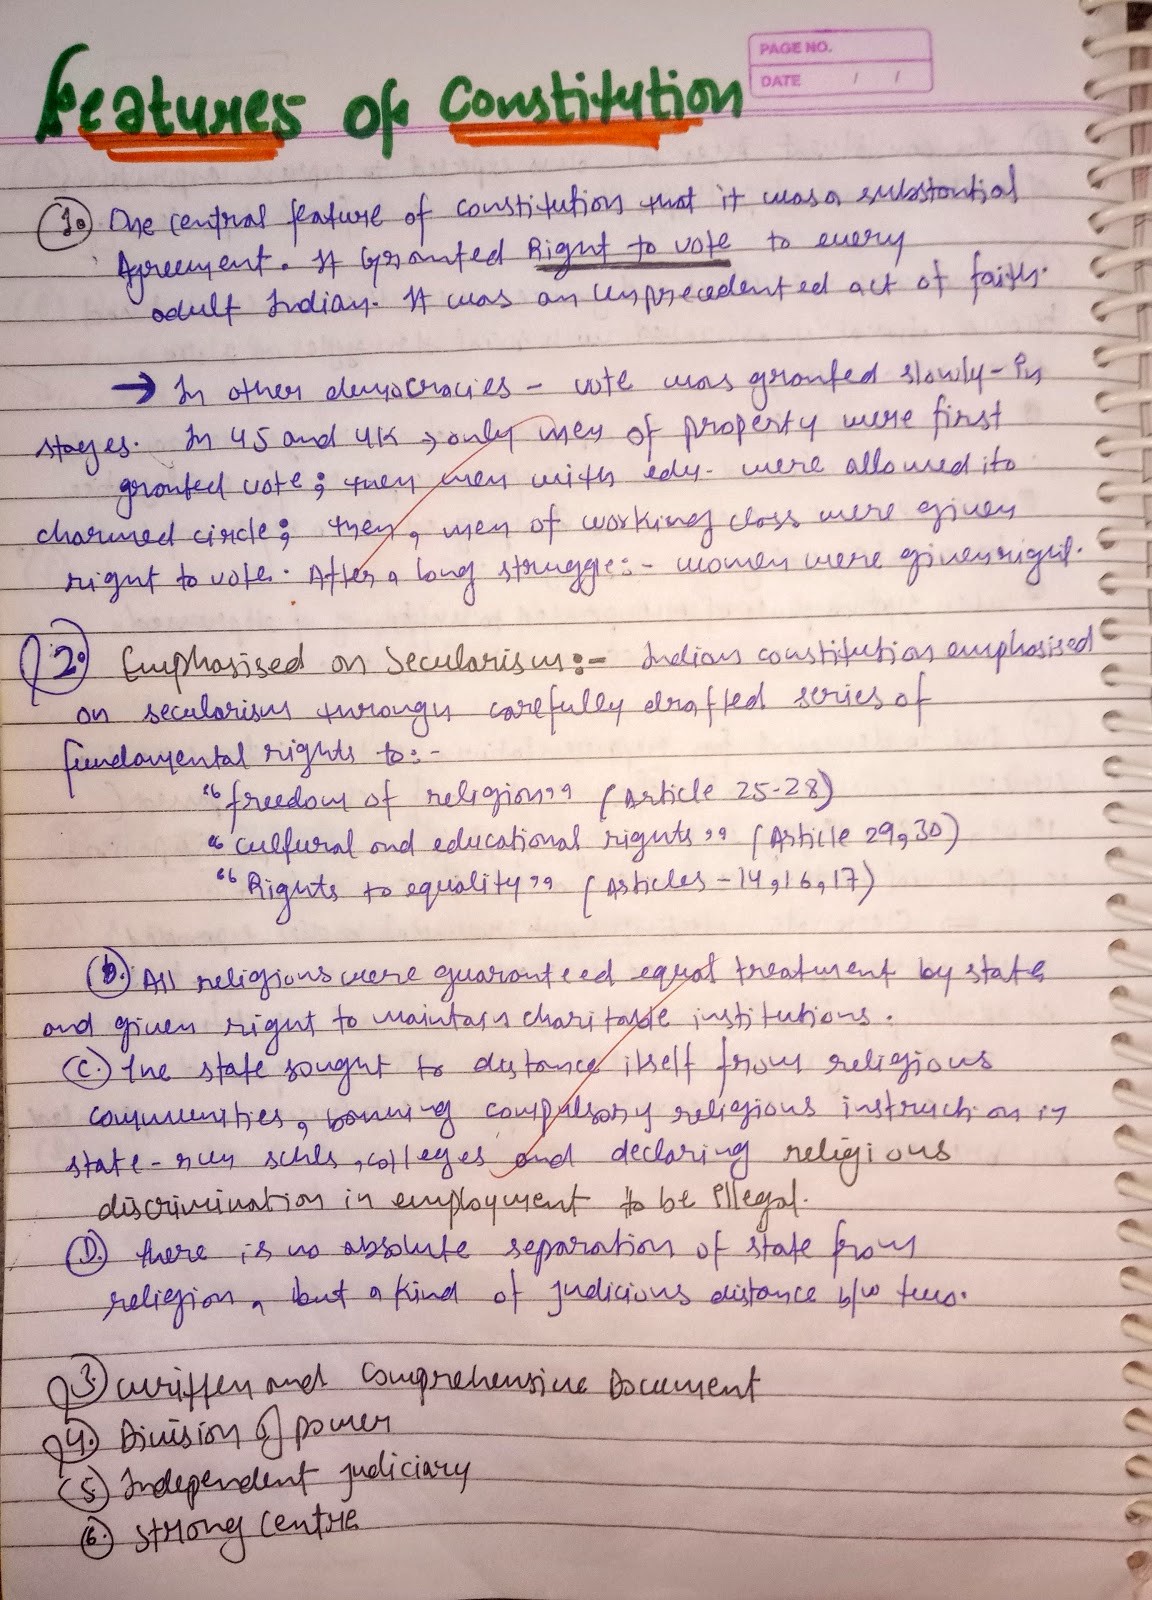 PAGE NO.
DATE / /
Features of Constitution
1. One central feature of constitution that it was a substantial
Agreement. It Granted Right to vote to every
adult Indian. It was an Unprecedented act of faith.
→ In other democracies - vote was granted slowly - in
stages. In US and UK → only men of property were first
granted vote; then men with edu. were allowed ito
charmed circle; then, men of working class were given
right to vote. After a long struggle:- women were given right.
2. Emphasised on Secularism:- Indian constitution emphasised
on secularism through carefully drafted series of
fundamental rights to:-
"freedom of religion" (Article 25-28)
"cultural and educational rights" (Article 29,30)
"Rights to equality" (Articles - 14,16,17)
B. All religions were guaranteed equal treatment by state
and given right to maintain charitable institutions.
C. The state sought to distance itself from religious
communities, banning compulsory religious instruction in
state-run schls, colleges and declaring religious
discrimination in employment to be illegal.
D. there is no absolute separation of state from
religion, but a kind of judicious distance b/w two.
3. written and Comprehensive Document
4. Division of power
5. Independent judiciary
6. strong centre